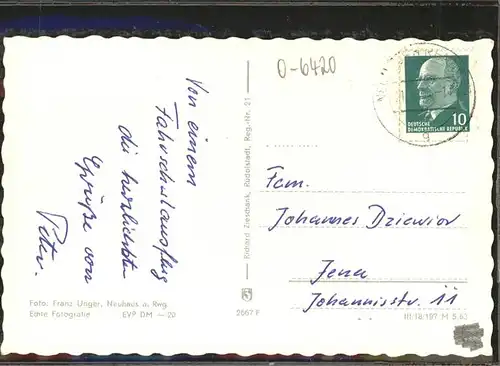 O-6420
Von einem
Fahrschulausflug
die herzlichsten
Grüße von
Peter.
10
DEUTSCHE
DEMOKRATISCHE REPUBLIK
Fam.
Johannes Dziewior
Jena
Johannisstr. 11
Richard Zieschank, Rudolstadt, Reg.-Nr. 21
Foto: Franz Unger, Neuhaus a. Rwg.
Echte Fotografie EVP DM —.20
2667 F
III/18/197 M 5.63